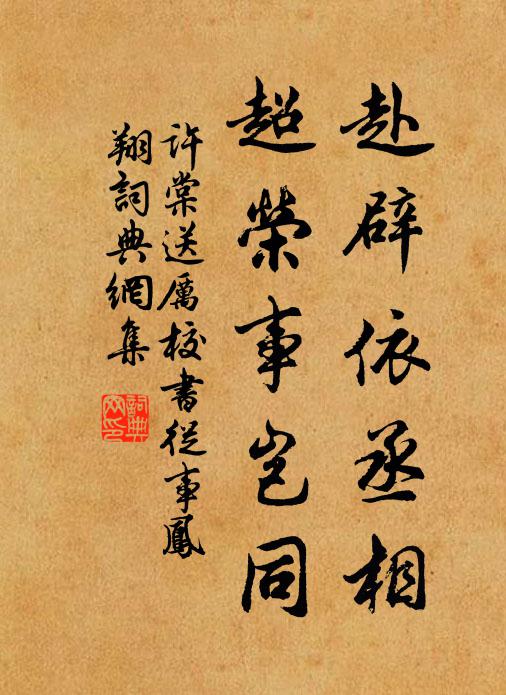 赴辟依丞相
超榮事豈同
許棠送厲校書從事鳳
翔詞典網集
詞典
网印